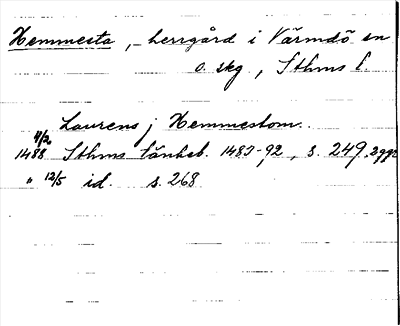 Hemmesta, - herrgård i Värmdö sn
o. skg, Sthms l.
Laurens j Hemmestom.
11/2
1488 Sthms tänkeb. 1483-92, s. 249. 2 ggr
" 12/5 id. s. 268